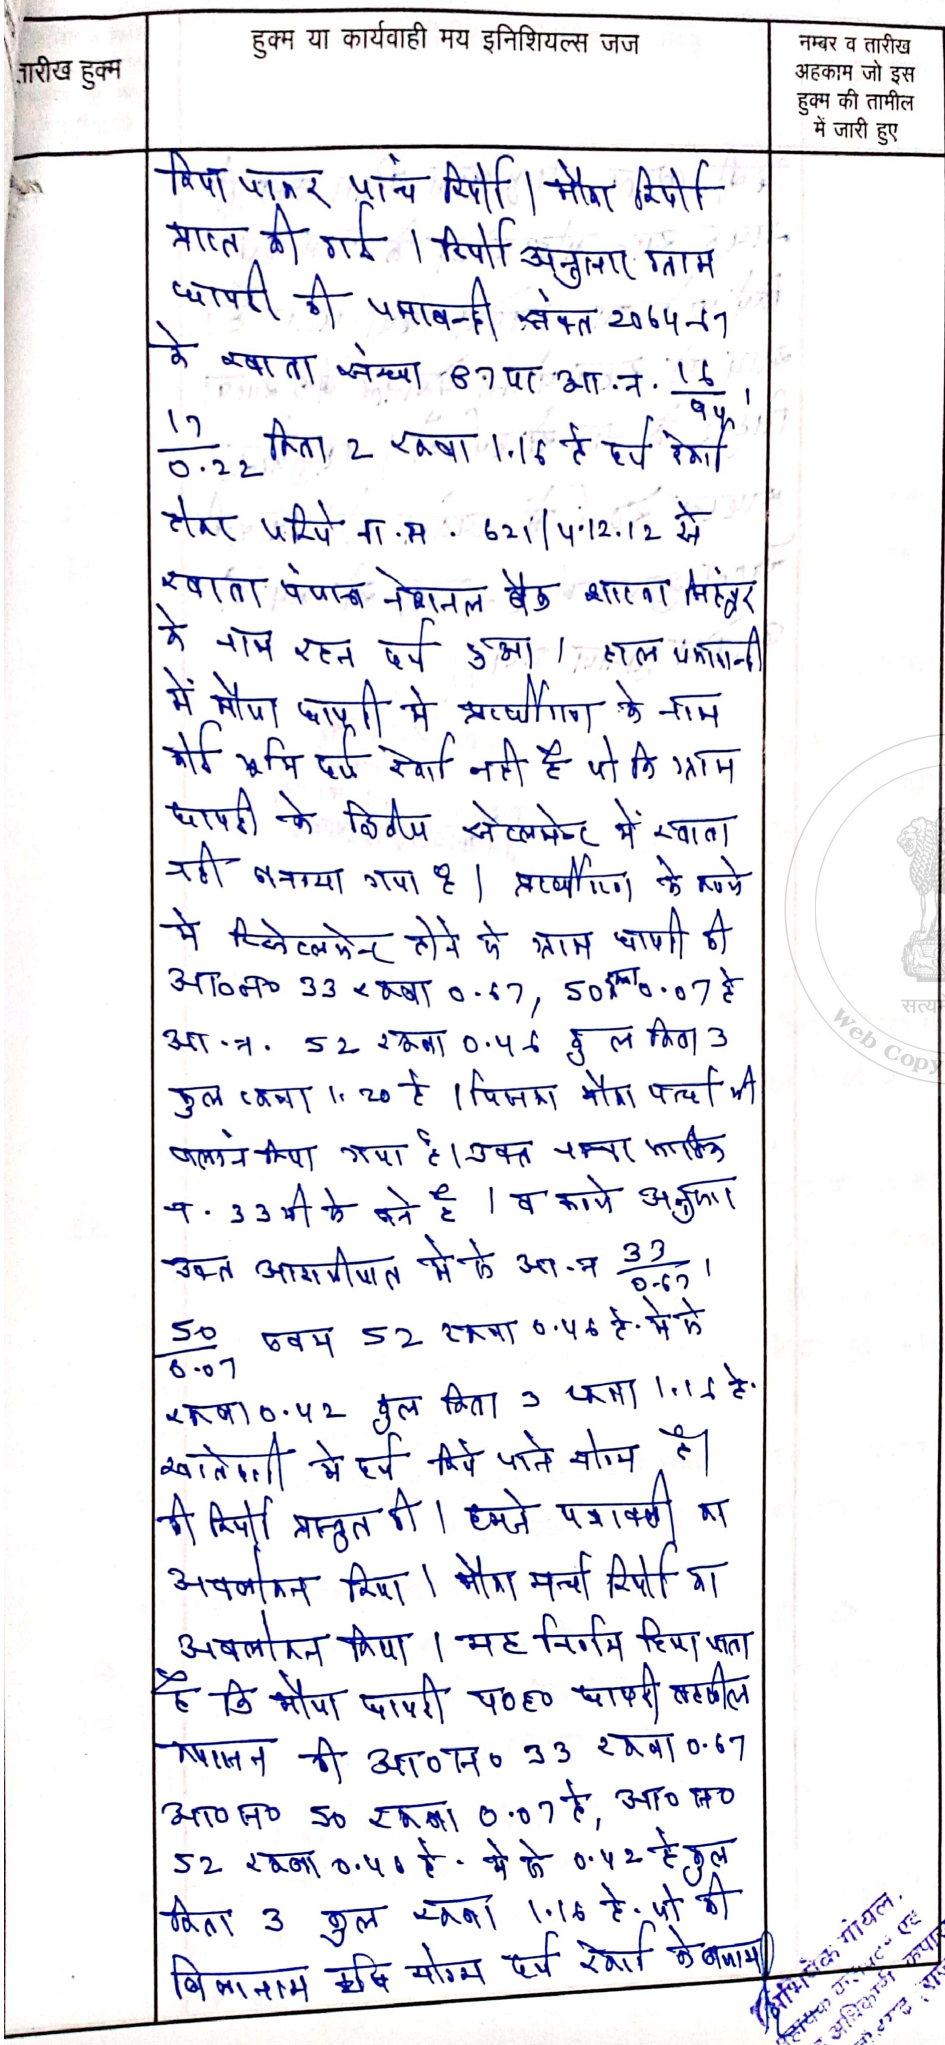 तारीख हुक्म
हुक्म या कार्यवाही मय इनिशियल्स जज
नम्बर व तारीख
अहकाम जो इस
हुक्म की तामील
में जारी हुए
किया जाकर जांच रिपोर्ट । मौका रिपोर्ट
प्राप्त की गई । रिपोर्ट अनुसार ग्राम
की जमाबन्दी संवत 2064-67
के खाता संख्या 67 पर आ.न. 16/0.94,
17/0.22 किता 2 रकबा 1.16 है दर्ज रेकार्ड
होकर जरिये ना.स. 621/4.12.12 से
खाता पंजाब नेशनल बैंक शाखा
के नाम रहन दर्ज हुआ । हाल जमाबन्दी
में मौजा में प्रार्थीगण के नाम
कोई भूमि दर्ज रेकार्ड नही है जो कि ग्राम
के द्वितीय सेटलमेन्ट में खाता
नही बनाया गया है । प्रार्थीगण के कब्जे
में रिसेटलमेन्ट होने से ग्राम की
आ०न० 33 रकबा 0.67, 50 रकबा 0.07 है
आ.न. 52 रकबा 0.46 कुल किता 3
कुल रकबा 1.20 है । जिसका मौका पर्चा भी
संलग्न किया गया है । उक्त नम्बर साबिक
न. 33 मी के बने है । व कब्जे अनुसार
उक्त आराजीयात में से आ.न 33/0.67,
50/0.07 एवम 52 रकबा 0.46 है. में से
रकबा 0.42 कुल किता 3 रकबा 1.16 है.
खातेदारी में दर्ज किये जाने योग्य है।
की रिपोर्ट प्रस्तुत की । हमने पत्रावली का
अवलोकन किया । मौका पर्चा रिपोर्ट का
अवलोकन किया । यह निर्णय दिया जाता
है कि मौजा प०ह० तहसील
कपासन की आ०न० 33 रकबा 0.67
आ०न० 50 रकबा 0.07 है, आ०न०
52 रकबा 0.46 है. में से 0.42 है कुल
किता 3 कुल रकबा 1.16 है. जो की
बिलानाम कृषि योग्य दर्ज रेकार्ड के बजाय
सत्य
Web Copy
गोयल
एवं